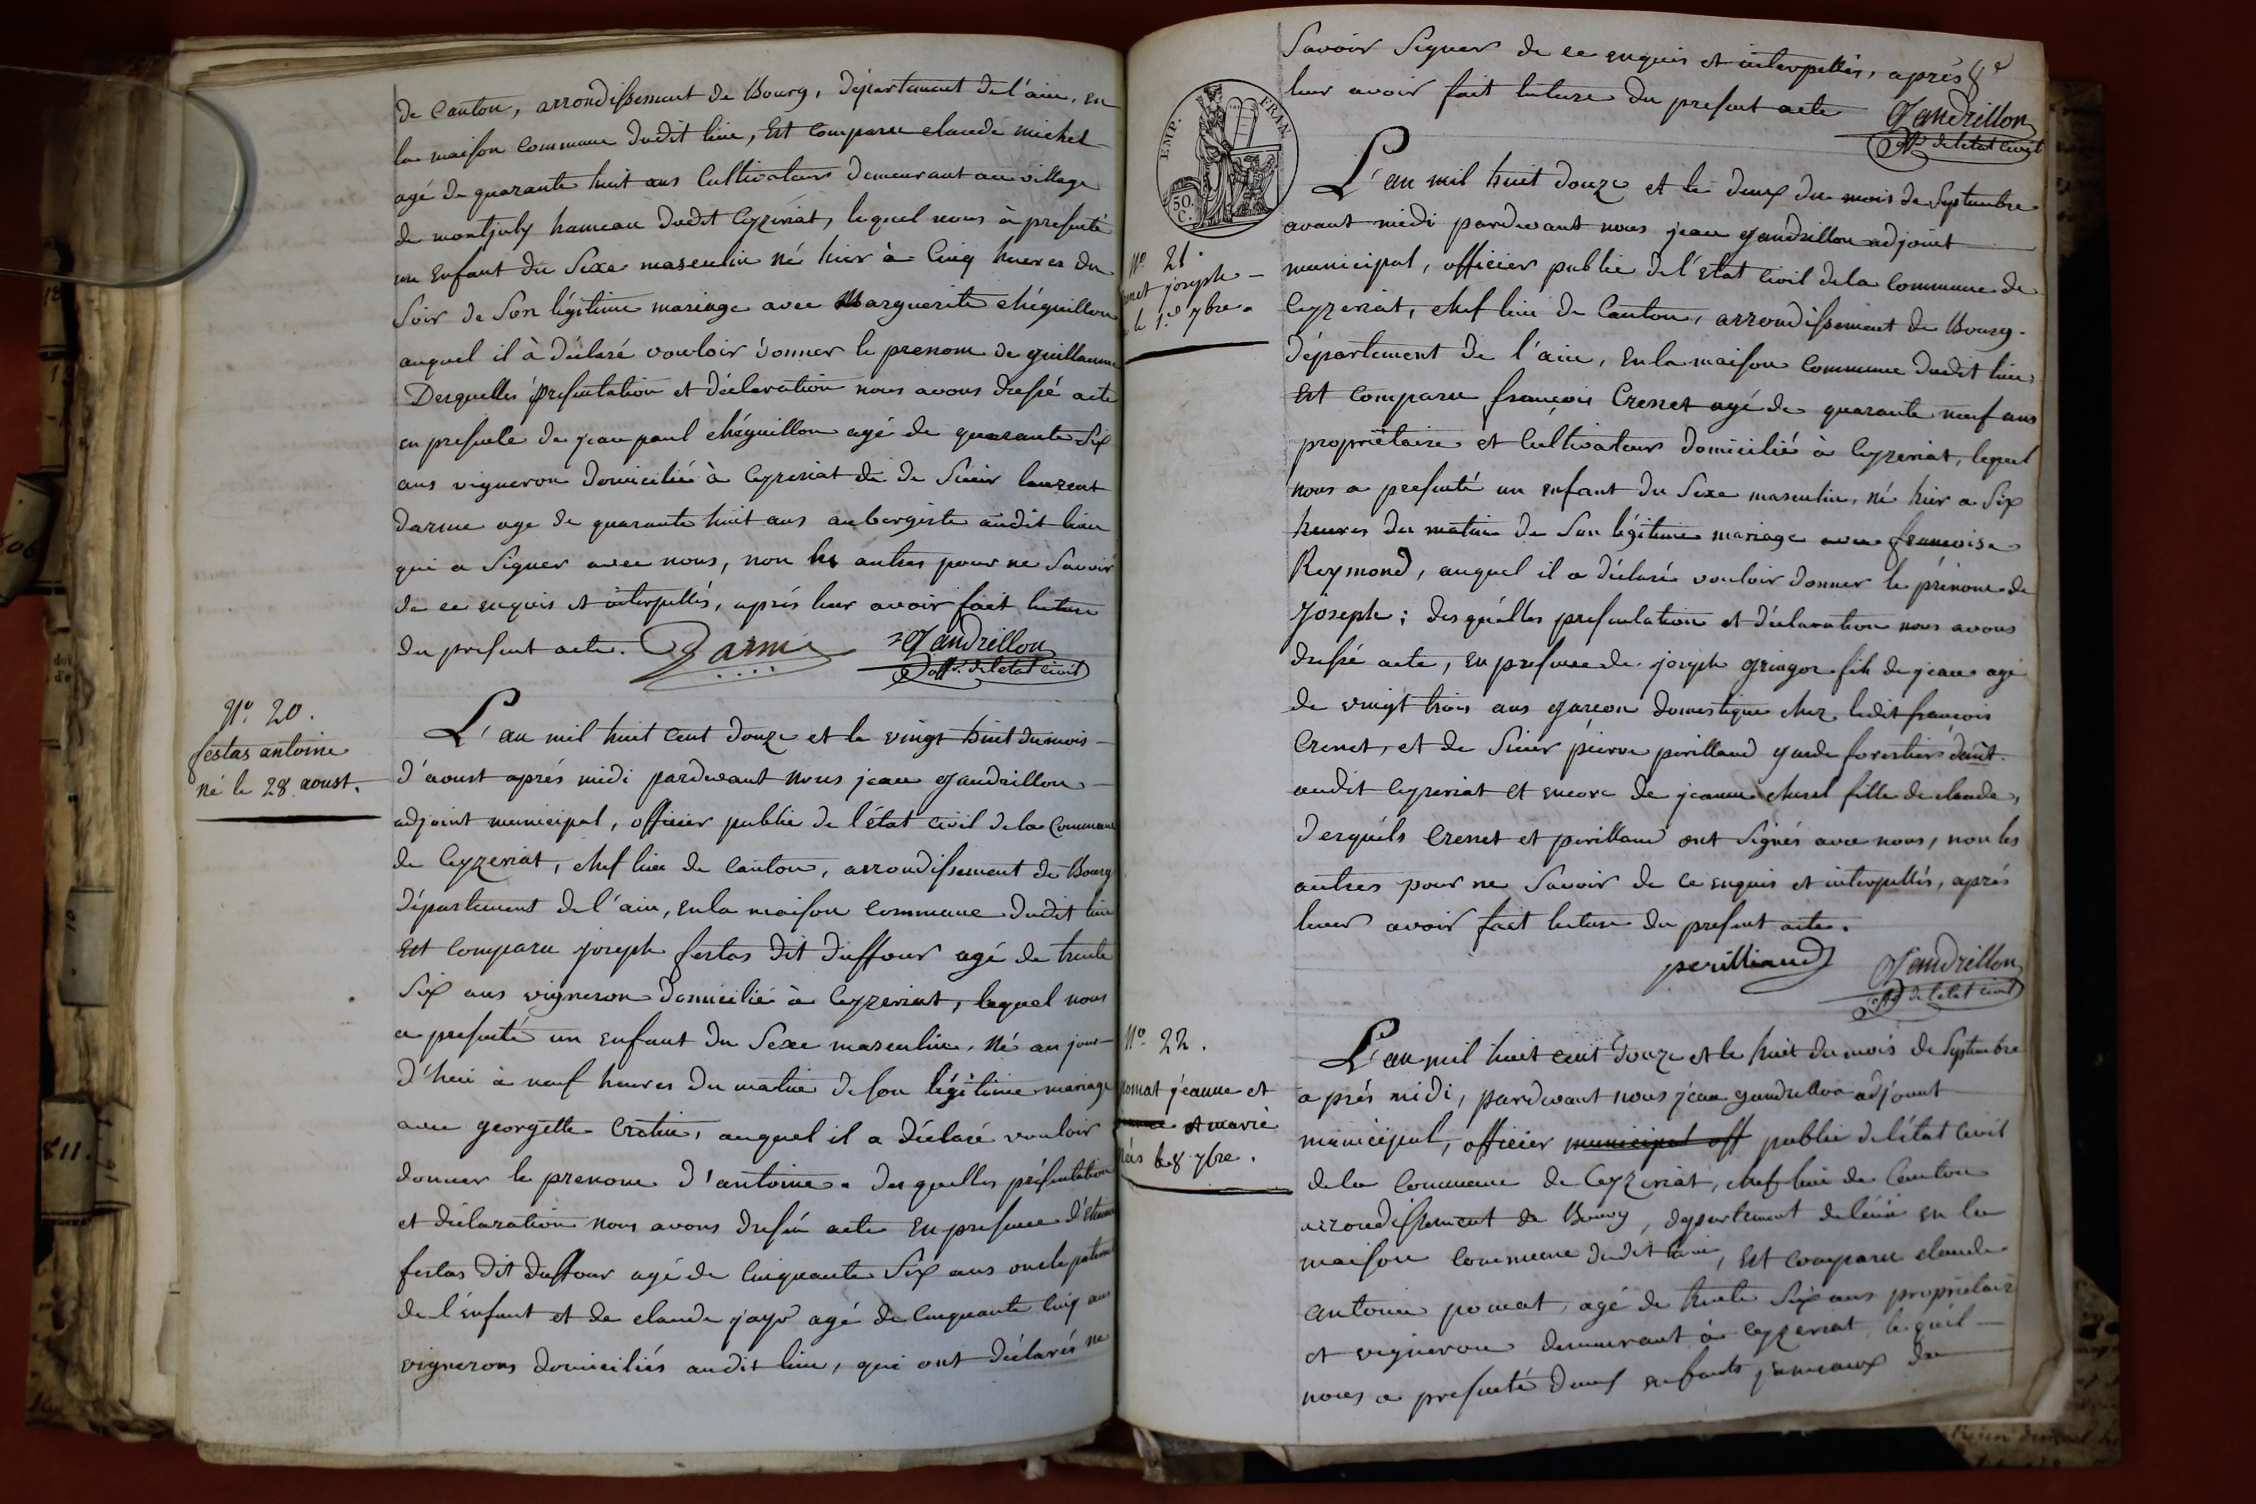 de Canton, arrondissement de Bourg, département de l'ain, en
la maison Commune dudit lieu, Est Comparu claude michel
agé de quarante huit ans Cultivateur demeurant au village
de montjuly hameau dudit Ceyzériat, lequel nous à présenté
un Enfant du Sexe masculin né hier à Cinq heures du
Soir de Son légitime mariage avec Marguerite chéguillon
auquel il à déclaré vouloir donner le prenom de guillaume
Desquelles présentation et déclaration nous avons dressé acte
en présence de jean paul chéguillon agé de quarante Six
ans vigneron domicilié à Ceyzeriat de de Sieur laurent
darme age de quarante huit ans aubergiste audit lieu
qui a Signer avec nous, non les autres pour ne Savoir
de ce enquis et interpellés, aprés leur avoir fait lecture
du présent acte. Darme Gandrillon
off. de l'état civil
N.º 20.
festas antoine
né le 28 aoust.
L'an mil huit Cent douze et le vingt huit du mois
d'aoust aprés midi pardevant nous jean gandrillon
adjoint municipal, officier public de l'état civil de la Commune
de Ceyzeriat, chef lieu de Canton, arrondissement de Bourg
département de l'ain, en la maison commune dudit lieu
Est Comparu joseph festas dit duffour agé de trente
Six ans vigneron domicilié à Ceyzeriat, lequel nous
a présenté un enfant du Sexe masculin, né au jour
d'hui à neuf heures du matin de son légitime mariage
avec georgette Crétin, auquel il a déclaré vouloir
donner le prenom d'antoine. desquelles présentation
et déclaration nous avons dressé acte En présence d'étienne
festas dit duffour agé de Cinquante Six ans oncle paternel
de l'enfant et de claude jayr agé de Cinquante Cinq ans
vignerons domiciliés audit lieu, qui ont déclarés ne
Savoir Signer de ce enquis et interpellés, aprés
leur avoir fait lecture du présent acte Gandrillon
off. de l'état civil
EMP. FRAN.
50.
C.
N.º 21.
joseph
le 1.er 7bre.
L'an mil huit douze et le deux du mois de Septembre
avant midi pardevant nous jean gandrillon adjoint
municipal, officier public de l'état civil de la commune de
Ceyzeriat, chef lieu de Canton, arrondissement de Bourg.
département de l'ain, En la maison Commune dudit lieu
Est Comparu françois Cresnet agé de quarante neuf ans
propriétaire et Cultivateur domicilié à Ceyzeriat, lequel
nous a présenté un enfant du Sexe masculin, né hier a Six
heures du matin de Son légitime mariage avec francoise
Reymond, auquel il a déclaré vouloir donner le prénom de
joseph; desquelles présentation et déclaration nous avons
dressé acte, En présence de joseph gringoz fils de jean agé
de vingt trois ans garçon domestique chez ledit françois
Cresnet, et de Sieur pierre perilland garde forestier demt.
audit Ceyzeriat et encore de jeanne churel fille de claude,
desquels Cresnet et perilland ont Signés avec nous, non les
autres pour ne Savoir de ce enquis et interpellés, aprés
leur avoir fait lecture du présent acte.
perilliand Gandrillon
off. de l'état civil
N.º 22.
pomat jeanne et
et marie
nées le 8 7bre.
L'an mil huit cent douze et le huit du mois de Septembre
a prés midi, pardevant nous jean gandrillon adjoint
municipal, officier municipal off public de l'état civil
de la Commune de Ceyzeriat, chef lieu de Canton
arrondissement de Bourg, département de l'ain en la
maison Commune dudit lieu, Est comparu claude
antoine pomat, agé de trente Six ans propriétaire
et vigneron demeurant à Ceyzeriat, lequel
nous a présenté deux enfants jumeaux du